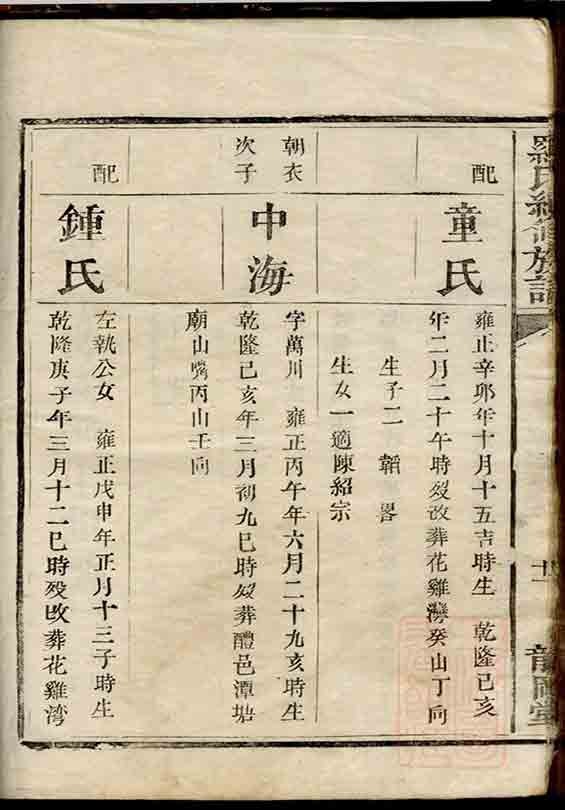 羅氏續修族譜
十一
龍岡堂
配
童氏
雍正辛卯年十月十五吉時生 乾隆己亥
年二月二十午時歿改葬花雞灣癸山丁向
生子二 韜 畧
生女一適陳紹宗
朝衣
次子
中海
字萬川 雍正丙午年六月二十九亥時生
乾隆己亥年三月初九巳時歿葬醴邑潭塘
廟山嘴丙山壬向
配
鍾氏
左執公女 雍正戊申年正月十三子時生
乾隆庚子年三月十二巳時歿改葬花雞湾